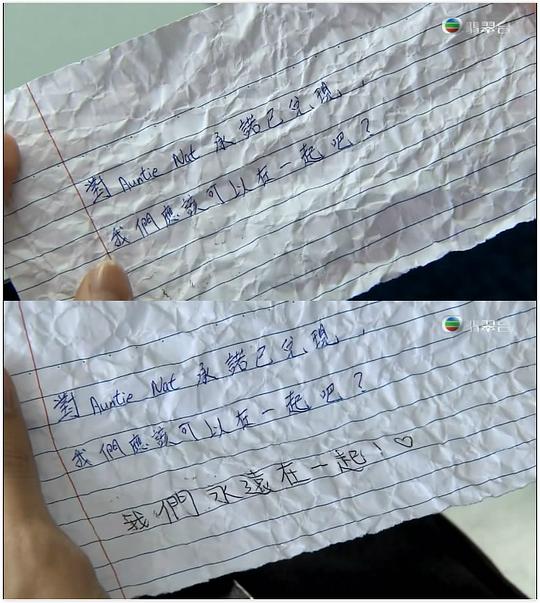 翡翠台
對 Auntie Nat 承諾已兌現,
我們應該可以在一起吧?
翡翠台
對 Auntie Nat 承諾已兌現,
我們應該可以在一起吧?
我們永遠在一起!♡